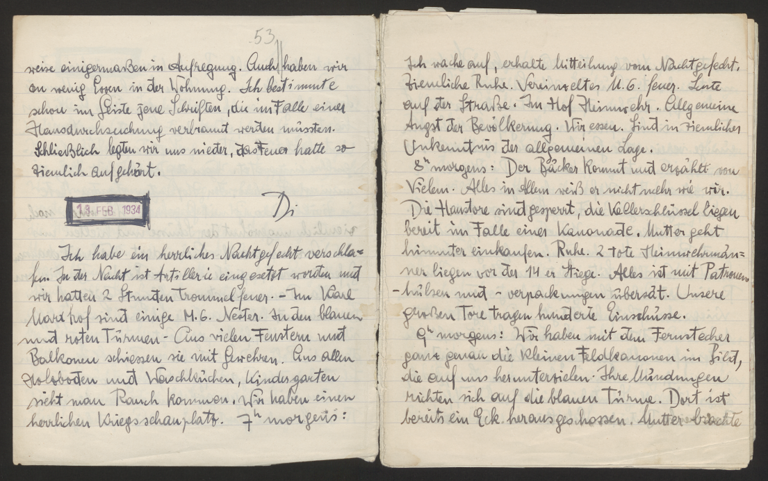 53
weise einigermaßen in Aufregung. Auch haben wir
ein wenig Essen in der Wohnung. Ich bestimmte
schon im Geiste jene Schriften, die im Falle einer
Hausdurchsuchung verbrannt werden müssten.
Schließlich legten wir uns nieder, das Feuer hatte so
ziemlich aufgehört.
13. FEB. 1934
Di
Ich habe ein herrliches Nachtgefecht verschla-
fen. In der Nacht ist Artillerie eingesetzt worden und
wir hatten 2 Stunden Trommelfeuer. - Im Karl
Marxhof sind einige M.G. Nester. In den blauen
und roten Türmen - Aus vielen Fenstern und
Balkonen schiessen sie mit Gewehren. Aus allen
und Waschküchen, Kindergarten
sieht man Rauch kommen. Wir haben einen
herrlichen Kriegsschauplatz. 7h morgens:
Ich wache auf, erhalte Mitteilung vom Nachtgefecht.
Ziemliche Ruhe. Vereinzeltes M.G. feuer. Leute
auf der Straße. Im Hof Heimwehr. Allgemeine
Angst der Bevölkerung. Wir essen. Sind in ziemlicher
Unkenntnis der allgemeinen Lage.
8h morgens: Der Bäcker kommt und erzählt von
Vielem. Alles in Allem weiß er nicht mehr wie wir.
Die Haustore sind gesperrt, die Kellerschlüssel liegen
bereit im Falle einer Kanonade. Mutter geht
hinunter einkaufen. Ruhe. 2 tote Heimwehrmän-
ner liegen vor der 14er Stiege. Alles ist mit Patronen
-hülsen und -verpackungen übersät. Unsere
großen Tore tragen hunderte Einschüsse.
9h morgens: Wir haben mit dem Fernstecher
ganz genau die kleinen Feldkanonen im Bild,
die auf uns herunterzielen. Ihre Mündungen
richten sich auf die blauen Türme. Dort ist
bereits ein Eck herausgeschossen. Mutter brachte